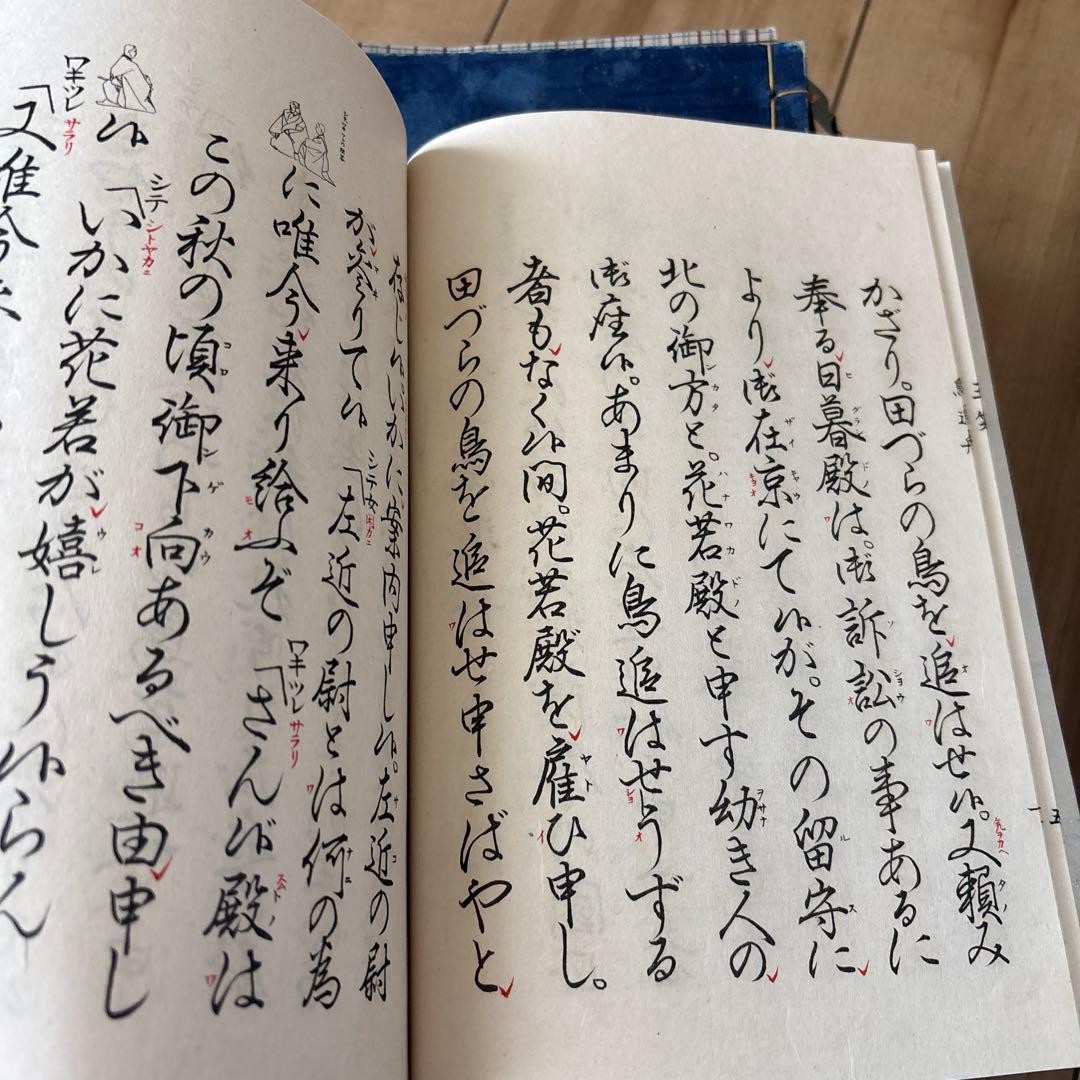 かざり。田づらの鳥を追はせ候。又頼み
奉る日暮殿は。御訴訟の事あるに
より御在京にて候が。その留守に
北の御方と。花若殿と申す幼き人の
御座候。あまりに鳥追はせうずる
者もなく候間。花若殿を雇ひ申し。
田づらの鳥を追はせ申さばやと
存じ候いかに案内申し候。左近の尉
が参りて候「左近の尉とは何の為
に唯今来り給ふぞ「さん候殿は
この秋の頃御下向あるべき由申し
候「いかに花若が嬉しう候らん
「又唯今